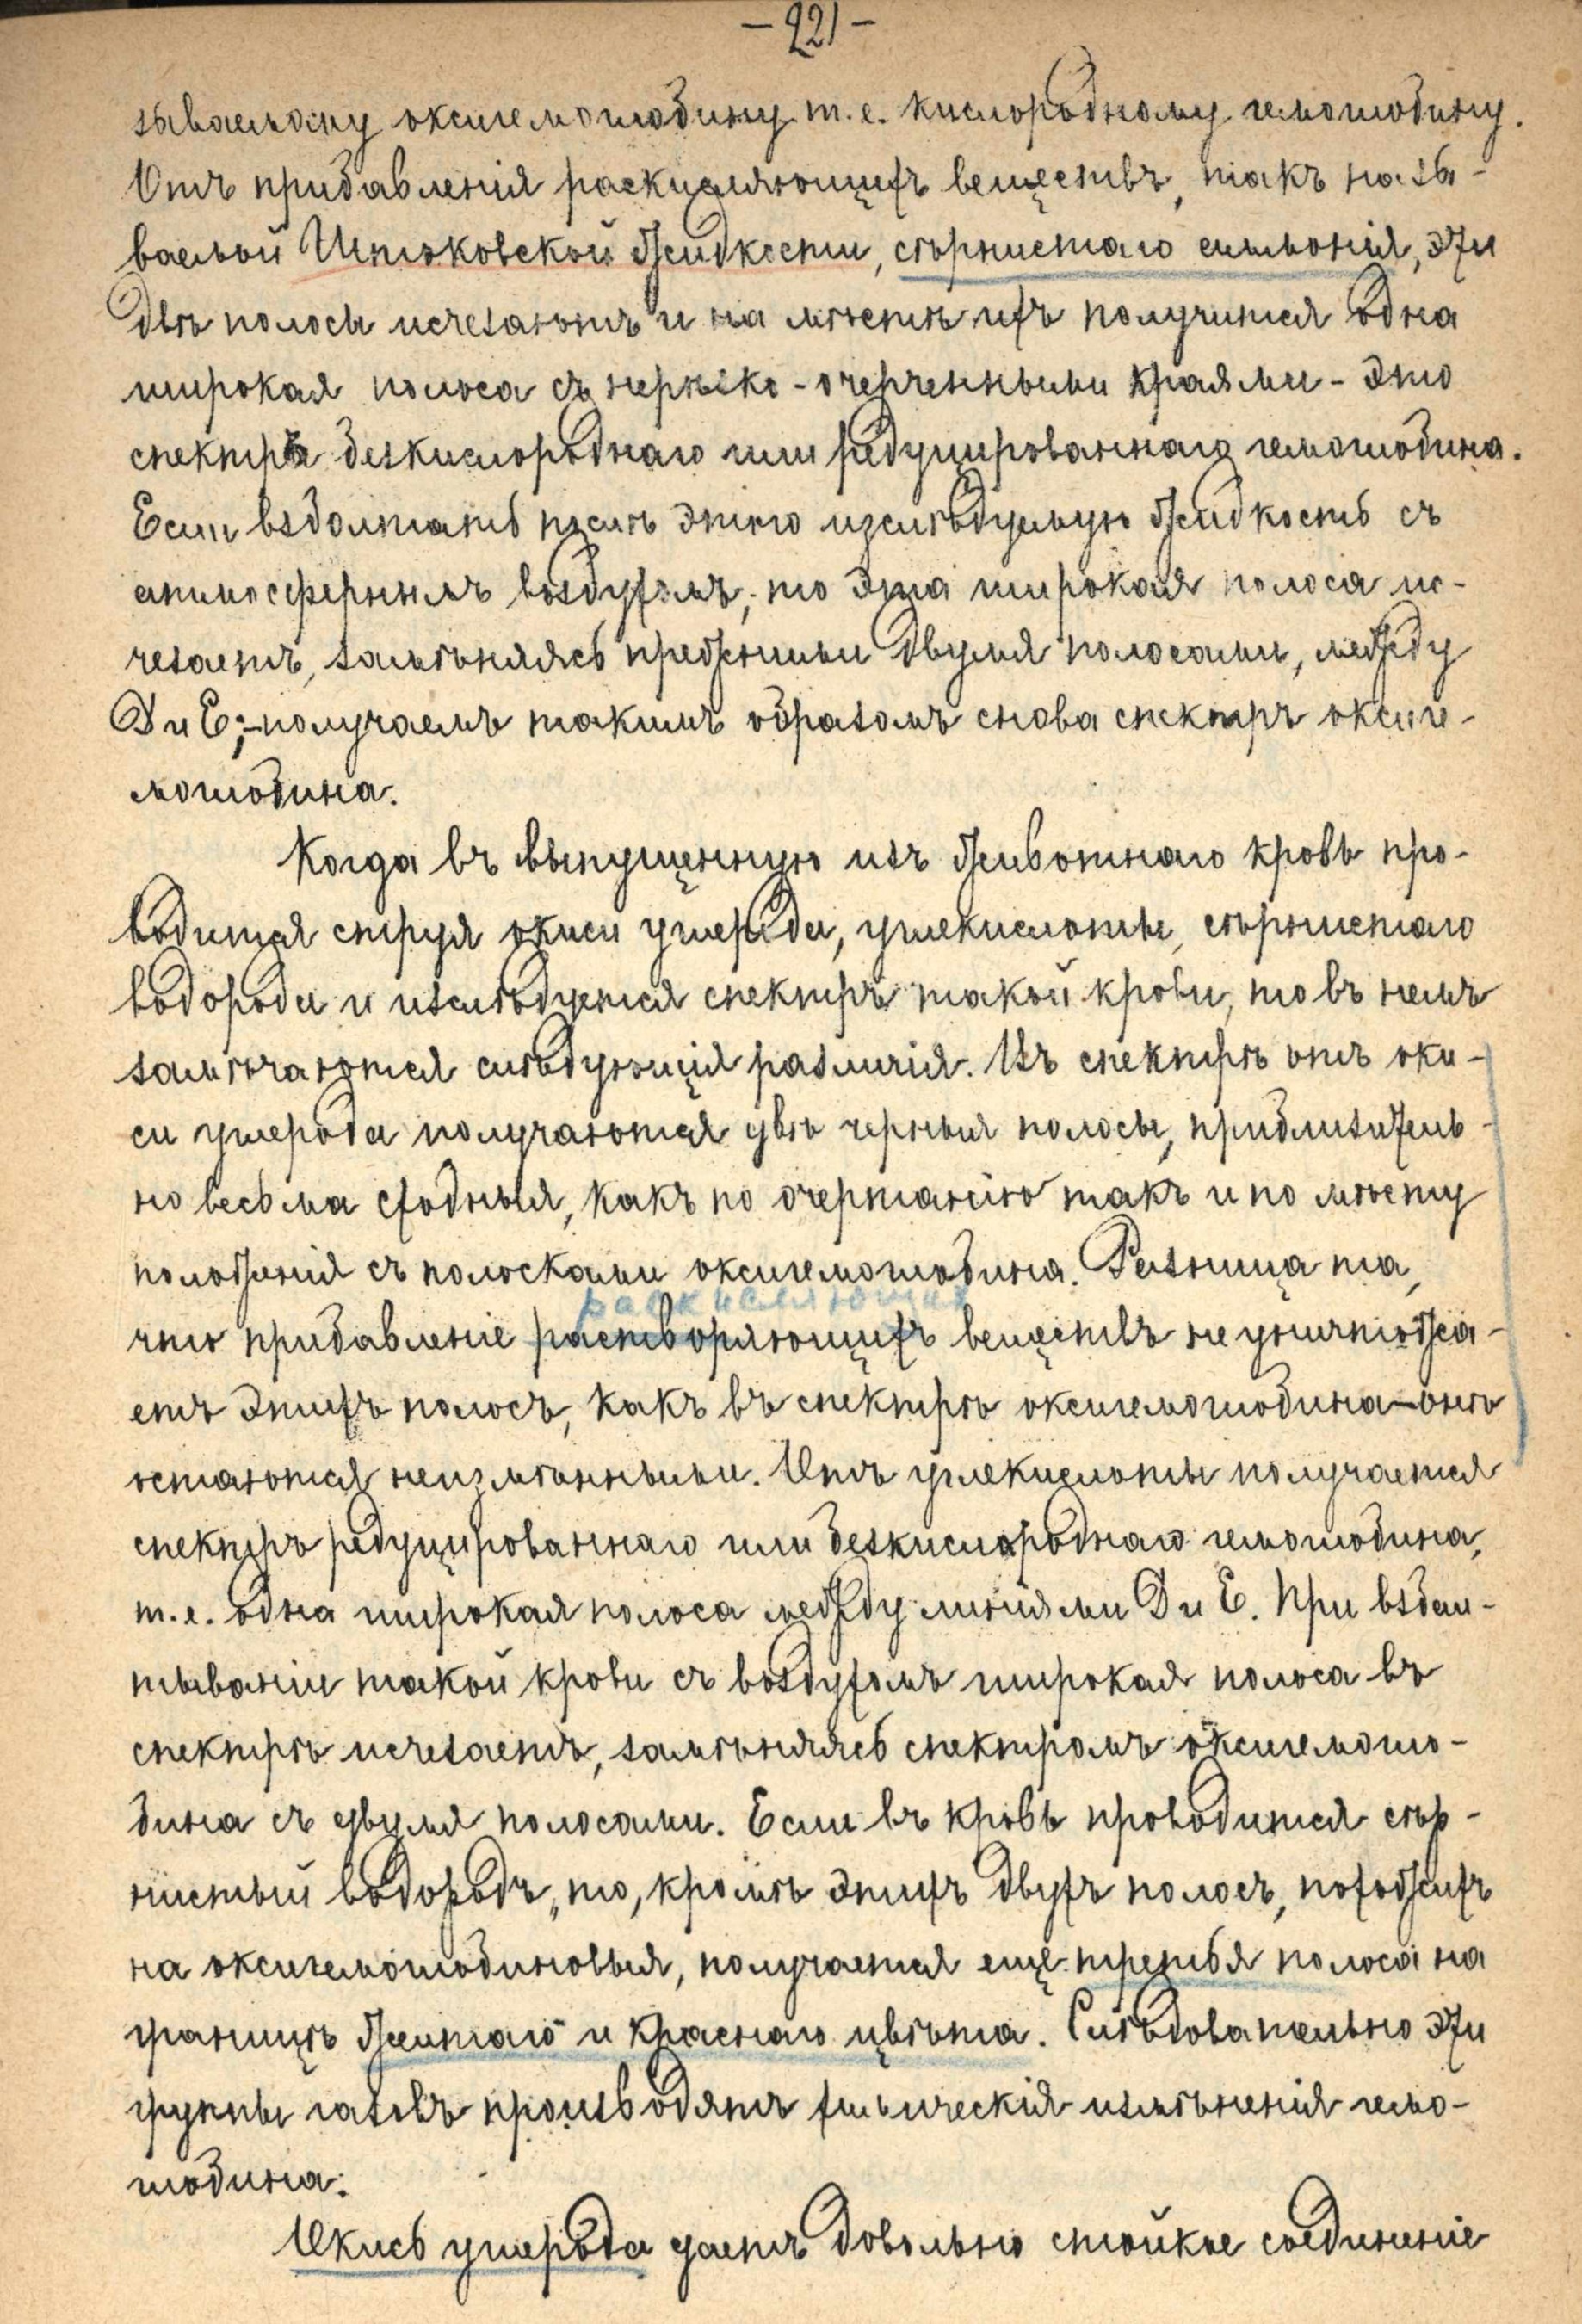 — 221 —
зываемому оксигемоглобину т. е. кислородному гемоглобину.
Отъ прибавленія раскисляющихъ веществъ, такъ назы-
ваемой Штоковской жидкости, сѣрнистаго аммонія, эти
двѣ полосы исчезаютъ и на мѣстѣ ихъ получится одна
широкая полоса съ нерѣзко-очерченными краями - это
спектръ безкислороднаго или редуцированнаго гемоглобина.
Если взболтать послѣ этого изслѣдуемую жидкость съ
атмосфернымъ воздухомъ, то эта широкая полоса ис-
чезаетъ, замѣняясь прежними двумя полосами, между
D и E; - получаемъ такимъ образомъ снова спектръ оксиге-
моглобина.
Когда въ выпущенную изъ животнаго кровь про-
водится струя окиси углерода, углекислоты, сѣрнистаго
водорода и изслѣдуется спектръ такой крови, то въ немъ
замѣчаются слѣдующія различія. Въ спектрѣ отъ оки-
си углерода получаются двѣ черныя полосы, приблизитель-
но весьма сходныя, какъ по очертанію такъ и по мѣсту
положенія съ полосками оксигемоглобина. Разница та,
раскисляющихъ
что прибавленіе растворяющихъ веществъ не уничтожа-
етъ этихъ полосъ, какъ въ спектрѣ оксигемоглобина — онѣ
остаются неизмѣнными. Отъ углекислоты получается
спектръ редуцированнаго или безкислороднаго гемоглобина,
т. е. одна широкая полоса между линіями D и E. При взбал-
тываніи такой крови съ воздухомъ широкая полоса въ
спектрѣ исчезаетъ, замѣняясь спектромъ оксигемогло-
бина съ двумя полосами. Если въ кровь проводится сѣр-
нистый водородъ, то, кромѣ этихъ двухъ полосъ, похожихъ
на оксигемоглобиновыя, получается еще третья полоса на
границѣ желтаго и краснаго цвѣта. Слѣдовательно эти
группы газовъ производятъ химическія измѣненія гемо-
глобина.
Окись углерода даетъ довольно стойкое соединеніе